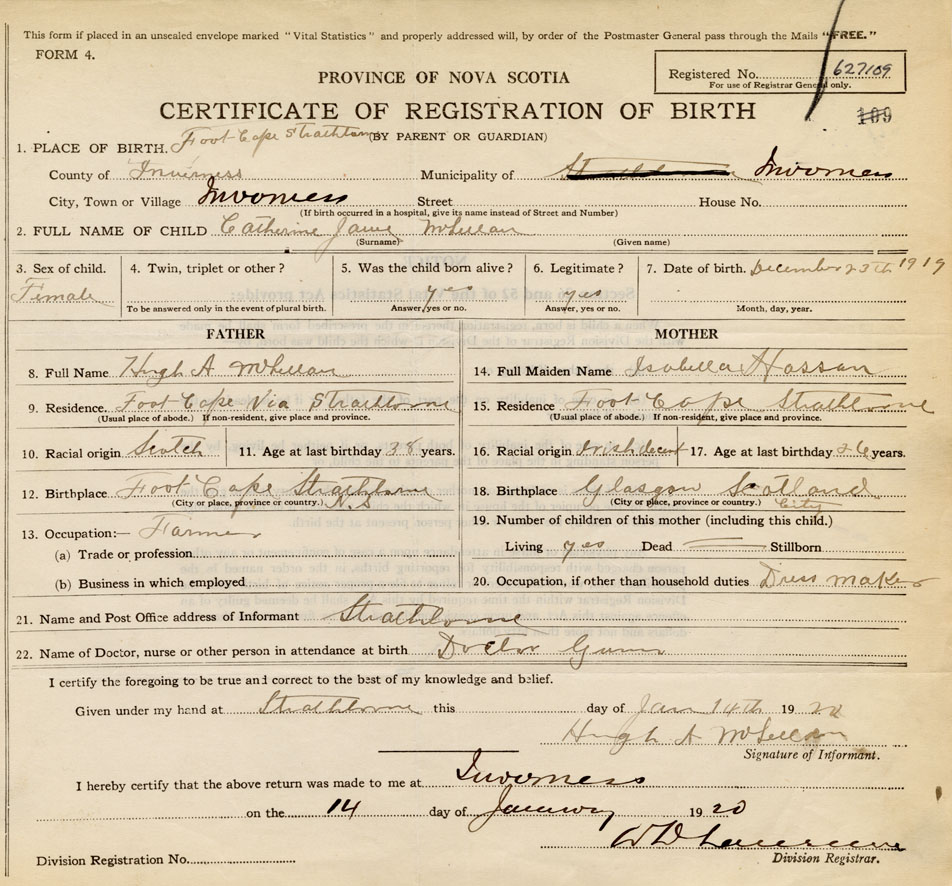 This form if placed in an unsealed envelope marked "Vital Statistics" and properly addressed will, by order of the Postmaster General pass through the Mails "FREE."
FORM 4.
Registered No. 627109
For use of Registrar General only.
PROVINCE OF NOVA SCOTIA
CERTIFICATE OF REGISTRATION OF BIRTH
109
(BY PARENT OR GUARDIAN)
1. PLACE OF BIRTH. Foot Cape Strathlorne
County of Inverness Municipality of Strathlorne Inverness
City, Town or Village Inverness Street House No.
(If birth occurred in a hospital, give its name instead of Street and Number)
2. FULL NAME OF CHILD Catherine Jane McLellan
(Surname) (Given name)
3. Sex of child. 4. Twin, triplet or other? 5. Was the child born alive? 6. Legitimate? 7. Date of birth. December 25th 1919
Female yes yes
To be answered only in the event of plural birth. Answer, yes or no. Answer, yes or no. Month, day, year.
FATHER MOTHER
8. Full Name Hugh A McLellan 14. Full Maiden Name Isabella Hassan
9. Residence. Foot Cape Via Strathlorne 15. Residence Foot Cape Strathlorne
(Usual place of abode.) If non-resident, give place and province. (Usual place of abode.) If non-resident, give place and province.
10. Racial origin Scotch 11. Age at last birthday 38 years. 16. Racial origin Irish decent 17. Age at last birthday 26 years.
12. Birthplace Foot Cape Strathlorne N.S 18. Birthplace Glasgow Scotland
(City or place, province or country.) (City or place, province or country.) City
13. Occupation:— Farmer 19. Number of children of this mother (including this child.)
(a) Trade or profession Living yes Dead Stillborn
(b) Business in which employed 20. Occupation, if other than household duties Dress maker
21. Name and Post Office address of Informant Strathlorne
22. Name of Doctor, nurse or other person in attendance at birth Doctor Gunn
I certify the foregoing to be true and correct to the best of my knowledge and belief.
Given under my hand at Strathlorne this day of Jan 14th 1920
Hugh A McLellan
Signature of Informant.
I hereby certify that the above return was made to me at Inverness
on the 14 day of January 1920
Division Registration No. Division Registrar.